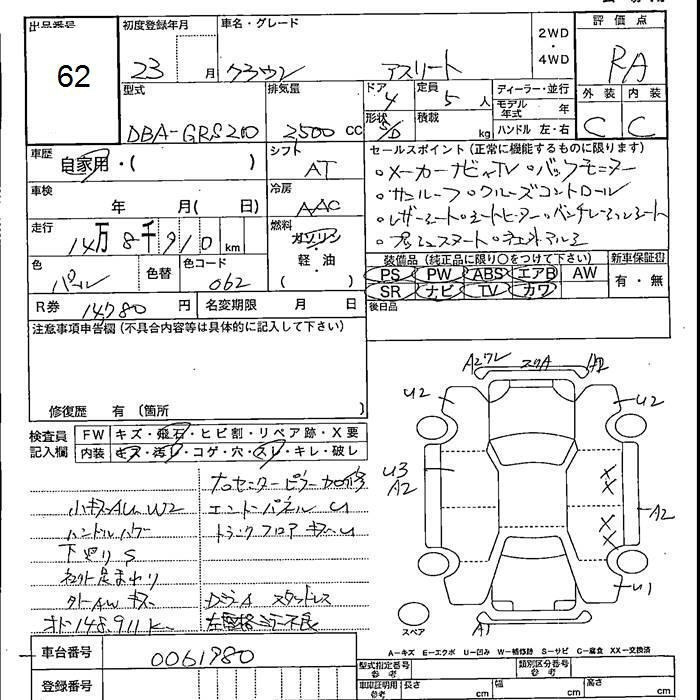 出品番号
62
初度登録年月
23 月
車名・グレード
クラウン アスリート
2WD
・
4WD
評価点
RA
型式
DBA-GRS200
排気量
2500 CC
ドア
4
形状
S/D
定員
5 人
積載
kg
ディーラー・並行
モデル年式 年
ハンドル 左・右
外装 内装
C C
車歴
自家用・( )
シフト
AT
セールスポイント(正常に機能するものに限ります)
・メーカーナビ・TV・バックモニター
・サンルーフ・クルーズコントロール
・レザーシート・シートヒーター・ベンチレーションシート
・プッシュスタート・社外アルミ
車検
年 月( 日)
冷房
AAC
走行
14万8千910 km
燃料
ガソリン
軽・油
( )
色
パール
色替
色コード
062
装備品(純正品に限り○をつけて下さい)
PS PW ABS エアB AW
SR ナビ TV カワ
新車保証書
有・無
R券 14780 円
名変期限 月 日
後日品
注意事項申告欄(不具合内容等は具体的に記入して下さい)
修復歴 有 (箇所 )
検査員記入欄
FW キズ・飛石・ヒビ割・リペア跡・X要
内装 キズ・汚レ・コゲ・穴・スレ・キレ・破レ
ナロセンターピラー加修
小キズAU W2 エンドパネル U
ハンドルハゲ トランクフロア キズU
下廻りS
社外足まわり
タトAWキズ D ラバA スタッドレス
オド148,911K 左電格ミラー不良
A2ワレ スリA A2
U2 U2
U3
A2
X
X
X
X
A2
U1
A1
スペア
A−キズ E−エクボ U−凹み W−補修跡 S−サビ C−腐食 XX−交換済
車台番号 0061980
登録番号
型式指定番号
参考
類別区分番号
参考
車庫証明用
参考
長さ cm
幅 cm
高さ cm